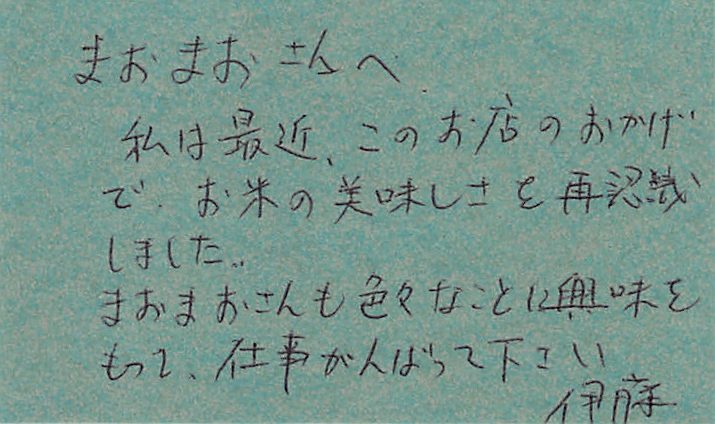 まおまおさんへ
私は最近、このお店のおかげ
で、お米の美味しさを再認識
しました。
まおまおさんも色々なことに興味を
もって、仕事がんばって下さい
伊藤